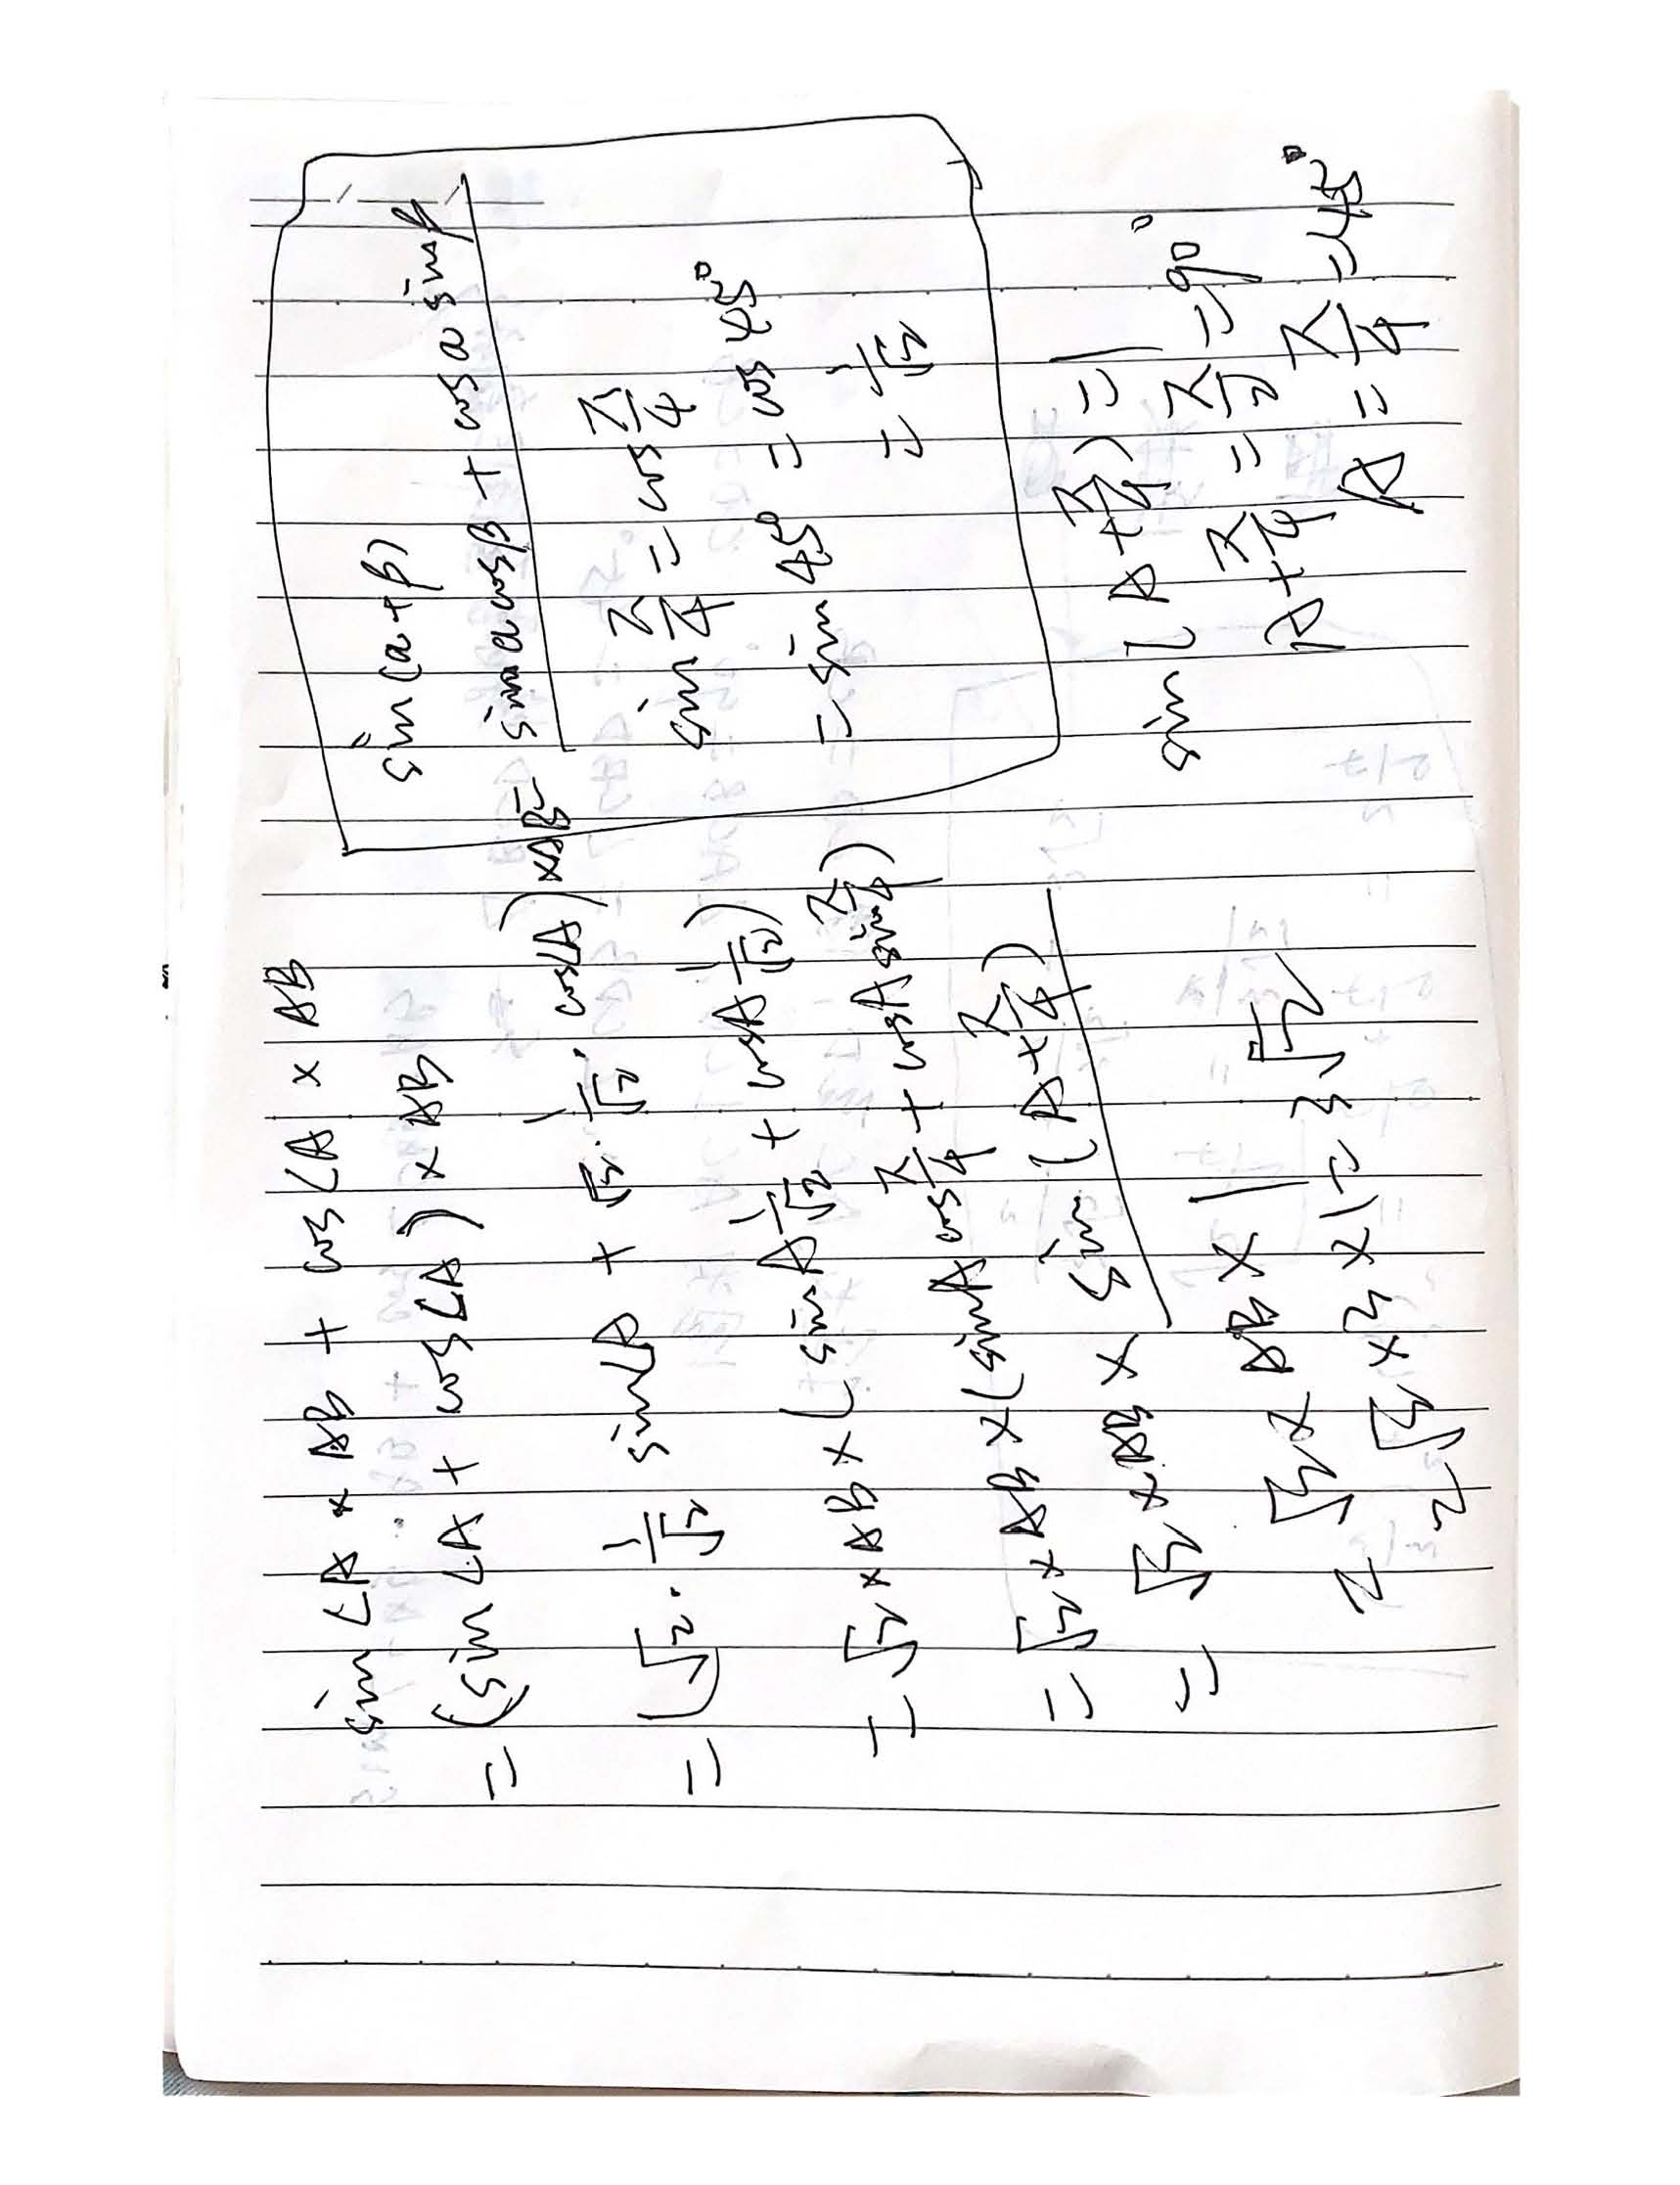 sin∠A × AB + cos∠A × AB
= (sin∠A + cos∠A) × AB
= (√2 · 1/√2 sin∠A + √2 · 1/√2 · cos∠A) × AB
= √2 × AB × (sinA 1/√2 + cosA 1/√2)
= √2 × AB × (sinA cos π/4 + cosA sin π/4)
= √2 × AB × sin(A + π/4)
√2 × AB × 1
√2 × 2 × 1 = 2√2
sin(α+β)
= sinα cosβ + cosα sinβ
sin π/4 = cos π/4
= sin 45° = cos 45°
= 1/√2
sin(A + π/4) = 1
A + π/4 = π/2 = 90°
A = π/4 = 45°